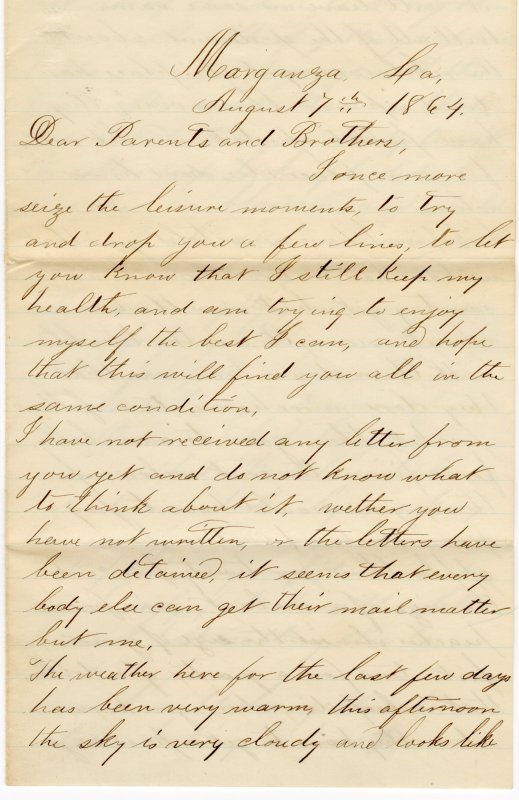 Marganza La,
August 7th 1864.
Dear Parents and Brothers,
I once more
seize the leisure moments, to try
and drop you a few lines, to let
you know that I still keep my
health, and am trying to enjoy
myself the best I can, and hope
that this will find you all in the
same condition,
I have not received any letter from
you yet and do not know what
to think about it, wether you
have not written, or the letters have
been detained, it seems that every
body else can get their mail matter
but me,
The weather here for the last few days
has been very warm, this afternoon
the sky is very cloudy and looks like